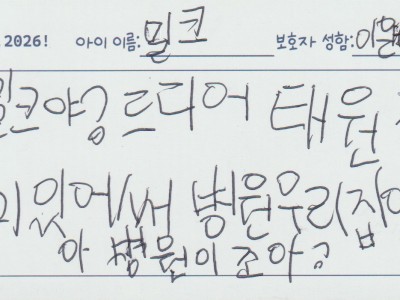 2026! 아이 이름: 밀크 보호자 성함:
밀크야 드디어 태원
있어써 병원우리
아 병원이 조아?